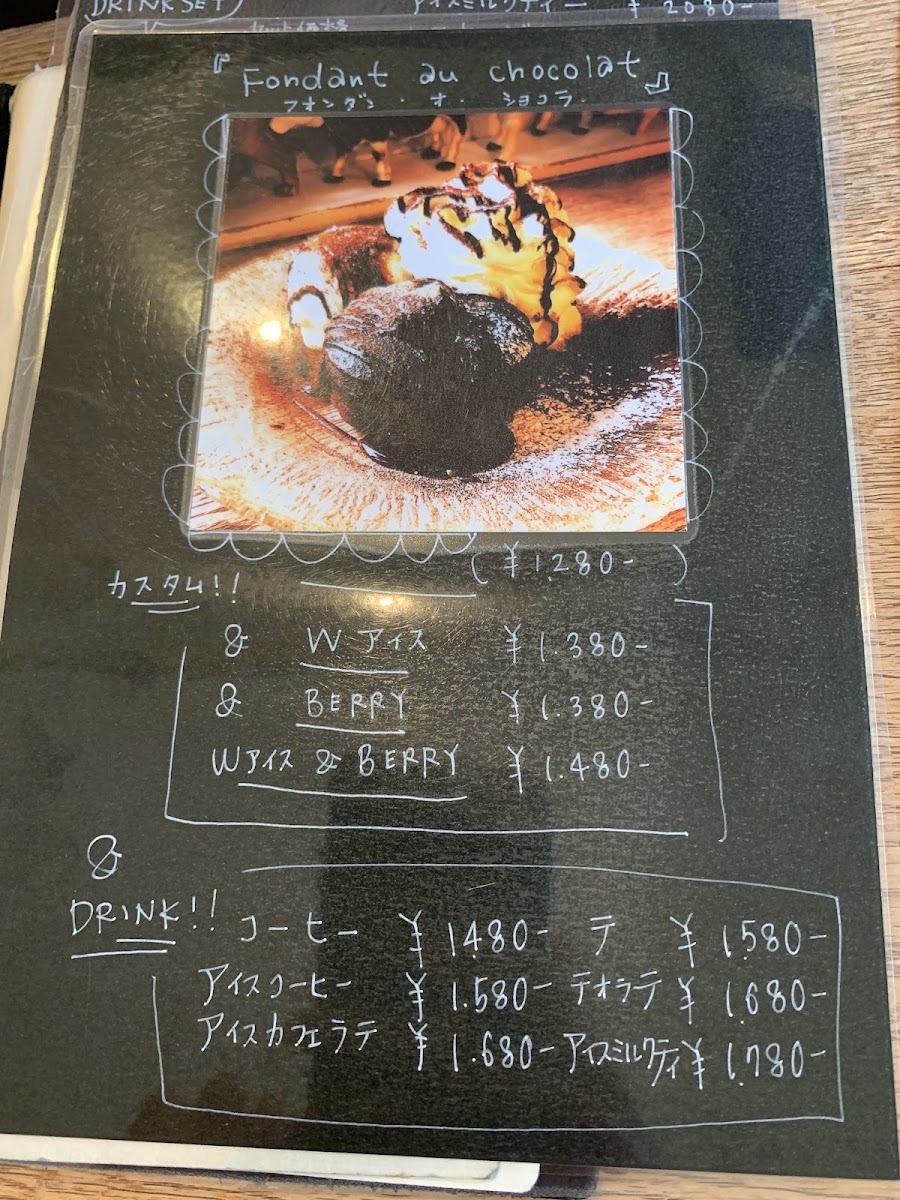 DRINK SET) アイスミルクティー ¥2080-
『Fondant au chocolat』
フォンダン・オ・ショコラ
(¥1.280-)
カスタム!!
& Wアイス ¥1.380-
& BERRY ¥1.380-
Wアイス & BERRY ¥1.480-
&
DRINK!! コーヒー ¥1480- テ ¥1.580-
アイスコーヒー ¥1.580- テオラテ ¥1.680-
アイスカフェラテ ¥1.680- アイスミルクティ ¥1.780-